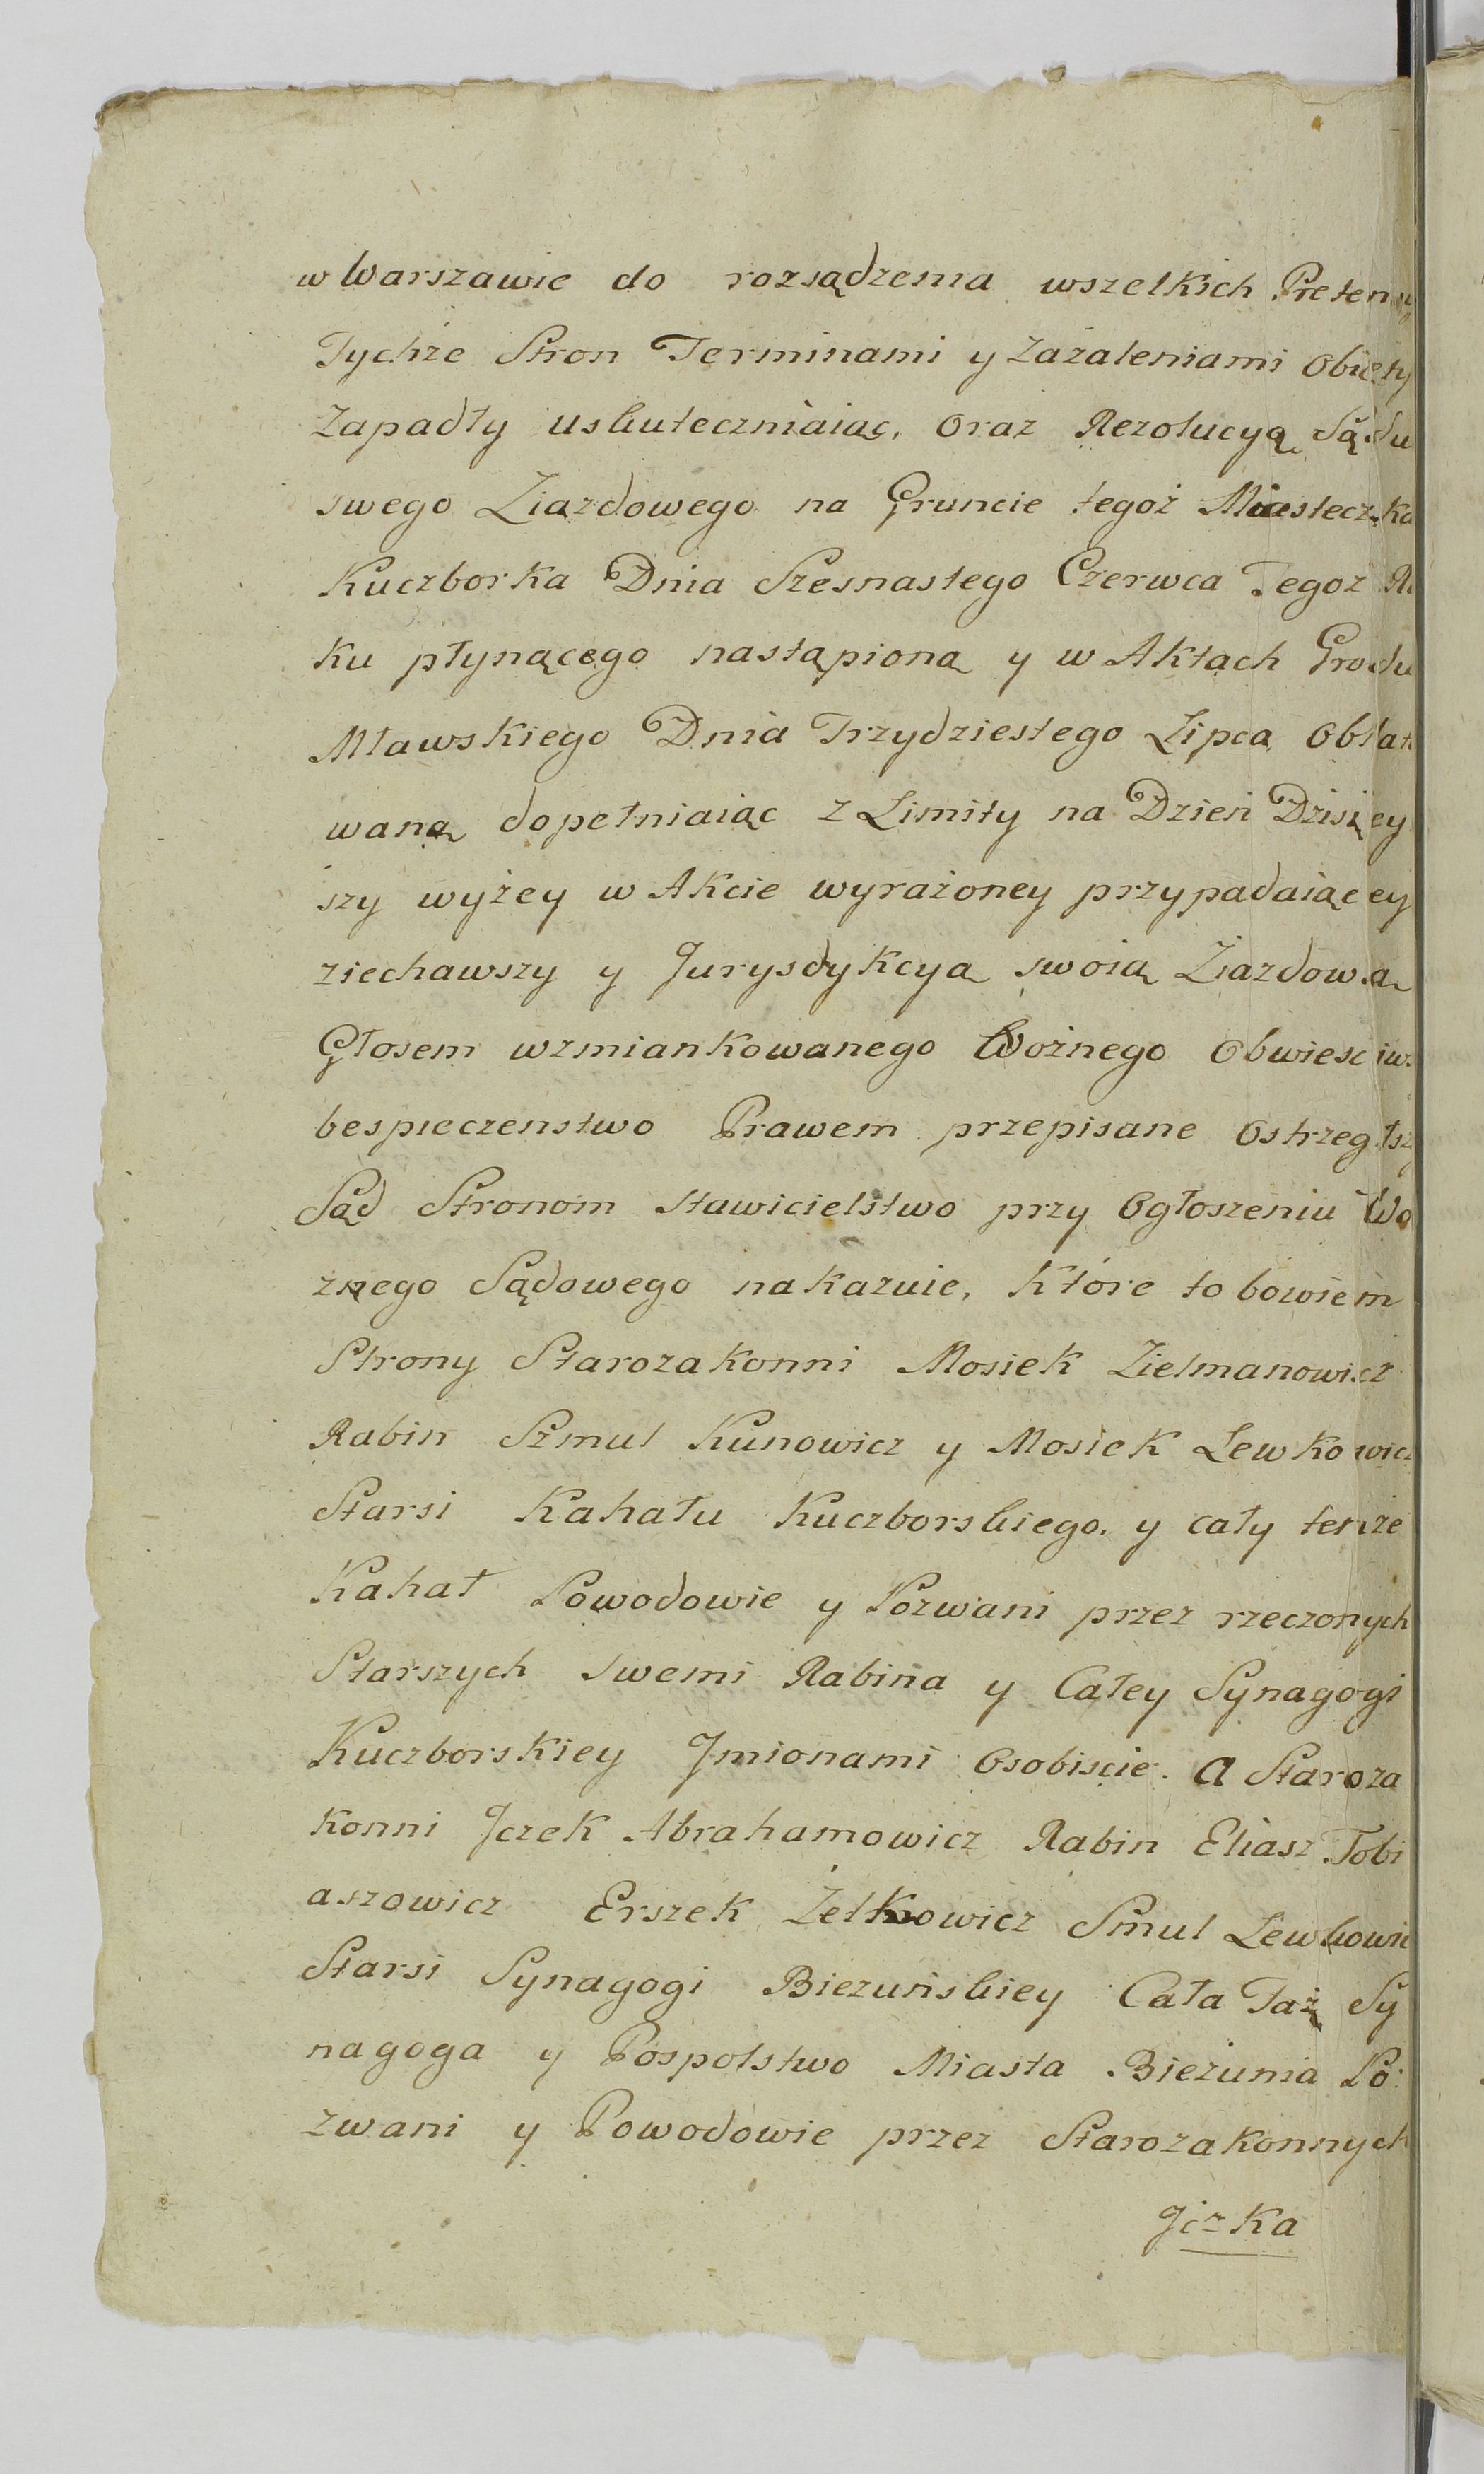 w Warszawie do rozsądzenia wszelkich Pretens
Tychże Stron Terminami y Zażaleniami Obięty
Zapadły uskuteczniaiąc, Oraz Rezolucyą Sądu
swego Ziazdowego na Gruncie tegoż Miasteczka
Kuczborka Dnia Szesnastego Czerwca Tegoż Ro
ku płynącego nastąpioną y w Aktach Grodu
Mławskiego Dnia Trzydziestego Lipca Oblato
waną dopełniaiąc z Limity na Dzień Dzisiey
szy wyżey w Akcie wyrażoney przypadaiącey
ziechawszy y Jurysdykcyą swoią Ziazdową
Głosem wzmiankowanego Woźnego Obwieściws
bespieczenstwo Prawem przepisane Ostrzegłszy
Sąd Stronom stawicielstwo przy Ogłoszeniu Wo
znego Sądowego nakazuie, Które to bowiem
Strony Starozakonni Mosiek Zielmanowicz
Rabin Szmul Kunowicz y Mosiek Lewkowicz
Starsi Kahału Kuczborskiego, y cały tenże
Kahał Powodowie y Pozwani przez rzeczonych
Starszych swemi Rabina y Całey Synagogi
Kuczborskiey Jmionami Osobiscie. a Staroza
konni Jczek Abrahamowicz Rabin Eliasz Tobi
aszowicz Erszek Zelkowicz Smul Lewkowic
Starsi Synagogi Biezuńskiey Cała Taż Sy
nagoga y Pospolstwo Miasta Bieżunia Po:
zwani y Powodowie przez Starozakonnych
Jczka